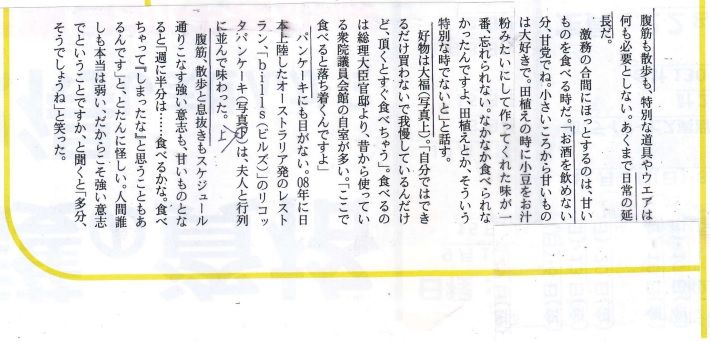 腹筋も散歩も、特別な道具やウエアは
何も必要としない。あくまで日常の延
長だ。
激務の合間にほっとするのは、甘い
ものを食べる時だ。「お酒を飲めない
分、甘党でね。小さいころから甘いもの
は大好きで。田植えの時に小豆をお汁
粉みたいにして作ってくれた味が一
番、忘れられない。なかなか食べられな
かったんですよ、田植えとか、そういう
特別な時でないと」と話す。
好物は大福(写真上)。「自分ではでき
るだけ買わないで我慢しているんだけ
ど、頂くとすぐ食べちゃう」。食べるの
は総理大臣官邸より、昔から使ってい
る衆院議員会館の自室が多い。「ここで
食べると落ち着くんですよ」
パンケーキにも目がない。08年に日
本上陸したオーストラリア発のレスト
ラン、「bills(ビルズ)」のリコッ
タパンケーキ(写真下)は、夫人と行列
上
に並んで味わった。
腹筋、散歩と息抜きもスケジュール
通りこなす強い意志も、甘いものとな
ると「週に半分は……食べるかな。食べ
ちゃって『しまったな』と思うこともあ
るんです」と、とたんに怪しい。人間誰
しも本当は弱い、だからこそ強い意志
でということですか、と聞くと「多分、
そうでしょうね」と笑った。